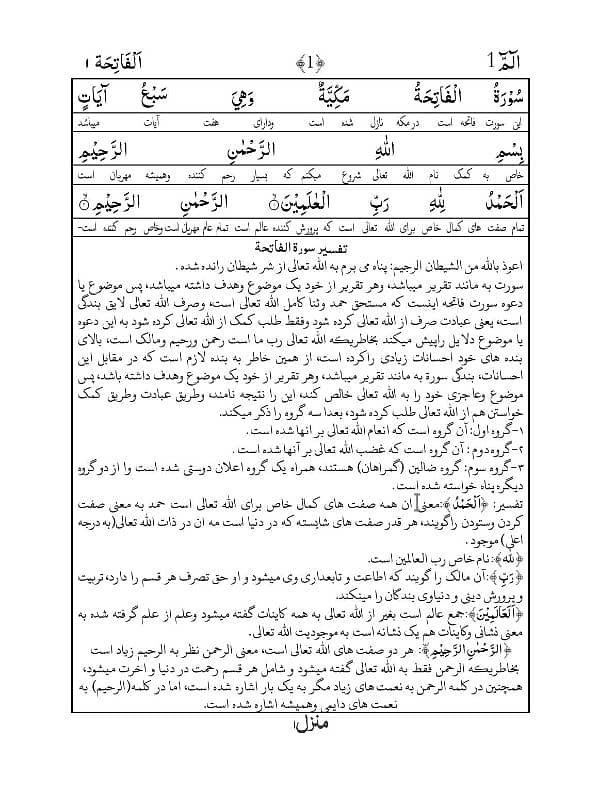 الٓمّٓ 1 ﴿1﴾ اَلْفَاتِحَة ۱
سُوْرَةُ الْفَاتِحَةُ مَكِّيَةٌ وَهِيَ سَبْعُ آيَاتٍ
این سورت فاتحه است درمکه نازل شده است ودارای هفت آیات میباشد
بِسْمِ اللهِ الرَّحْمٰنِ الرَّحِيْمِ
خاص به کمک نام الله تعالی شروع میکنم که بسیار رحم کننده وهمیشه مهربان است
اَلْحَمْدُ لِلّٰهِ رَبِّ الْعٰلَمِيْنَ۝۱ الرَّحْمٰنِ الرَّحِيْمِ۝۲
تمام صفت های کمال خاص برای الله تعالی است که پرورش کننده عالم است تمام عالم مهربان است وخاص رحم کننده است-
تفسیر سورة الفاتحة
اعوذ بالله من الشیطان الرجیم: پناه می برم به الله تعالی از شر شیطان رانده شده .
سورت به مانند تقریر میباشد، وهر تقریر از خود یک موضوع وهدف داشته میباشد، پس موضوع یا
دعوه سورت فاتحه اینست که مستحق حمد وثنا کامل الله تعالی است، وصرف الله تعالی لایق بندگی
است، یعنی عبادت صرف از الله تعالی کرده شود وفقط طلب کمک از الله تعالی کرده شود به این دعوه
یا موضوع دلایل راپیش میکند بخاطریکه الله تعالی رب ما است رحمن ورحیم ومالک است، بالای
بنده های خود احسانات زیادی راکرده است، از همین خاطر به بنده لازم است که در مقابل این
احسانات، بندگی سورة به مانند تقریر میباشد، وهر تقریر از خود یک موضوع وهدف داشته باشد، پس
موضوع وعاجزی خود را به الله تعالی خالص کند، این را نتیجه نامند، وطریق عبادت وطریق کمک
خواستن هم از الله تعالی طلب کرده شود، بعدا سه گروه را ذکر میکند.
۱-گروه اول: آن گروه است که انعام الله تعالی بر انها شده است.
۲-گروه دوم : آن گروه است که غضب الله تعالی بر آنها شده است .
۳-گروه سوم: گروه ضالین (گمراهان) هستند، همراه یک گروه اعلان دوستی شده است وا از دو گروه
دیگره پناه خواسته شده است.
تفسیر: ﴿اَلْحَمْدُ﴾:معنی آن همه صفت های کمال خاص برای الله تعالی است حمد به معنی صفت
کردن وستودن راگویند، هر قدر صفت های شایسته که در دنیا است مه ان در ذات الله تعالی(به درجه
اعلی) موجود .
﴿لله﴾:نام خاص رب العالمین است.
﴿رَبِّ﴾:آن مالک را گویند که اطاعت و تابعداری وی میشود و او حق تصرف هر قسم را دارد، تربیت
و پرورش دینی و دنیاوی بندگان را میکند.
﴿اَلعَالَمِيْنَ﴾:جمع عالم است بغیر از الله تعالی به همه کاینات گفته میشود وعلم از علم گرفته شده به
معنی نشانی وکاینات هم یک نشانه است به موجودیت الله تعالی.
﴿اَلرَّحْمٰنِ الرَّحِيْمِ﴾: هر دو صفت های الله تعالی است، معنی الرحمن نظر به الرحیم زیاد است
بخاطریکه الرحمن فقط به الله تعالی گفته میشود و شامل هر قسم رحمت در دنیا و اخرت میشود،
همچنین در کلمه الرحمن به نعمت های زیاد مگر به یک بار اشاره شده است، اما در کلمه(الرحیم) به
نعمت های دایمی وهمیشه اشاره شده است.
منزل۱